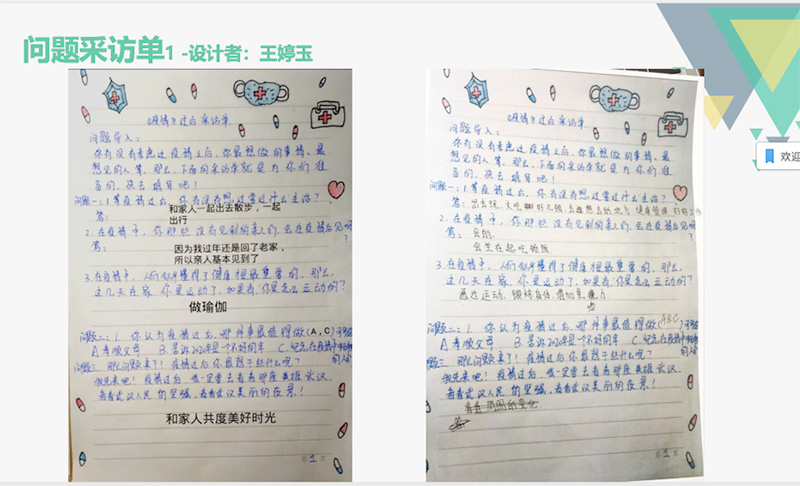 问题采访单1 -设计者：王婷玉
欢迎
《疫情》过后 采访单
问题导入：
你有没有考虑过疫情之后，你最想做的事情、最
想见的人等，那么，下面的采访单就是为你们准
备的，快去填写吧！
问题一：1.等疫情过后，你有没有想过要过什么生活？
答：
和家人一起出去散步，一起
出行
2.在疫情中，你那些没有见到的亲人们，会在疫情后见吗？
答：
因为我过年还是回了老家，
所以亲人基本见到了
3.在疫情中，人们似乎懂得了健康才是最重要的，那么，
这几天在家，你是否运动了，如果有，你是怎么运动的？
做瑜伽
问题二：1.你认为疫情过后，哪件事最值得做(A，C)
A.孝顺父母 B.告诉2019年是个不好的年 C.纪念在疫情中
问题三：那么问题来了！疫情过后你最想干些什么呢？
我先来吧！疫情过后，我一定要去看看那座英雄武汉，
看看武汉人民的坚强，看看武汉美丽的夜景！
和家人共度美好时光
第 1 页
《疫情》过后 采访单
问题导入：
你有没有考虑过疫情之后，你最想做的事情、最
想见的人等，那么，下面的采访单就是为你们准
备的，快去填写吧！
问题一：1.等疫情过后，你有没有想过要过什么生活？
答：出去玩
2.在疫情中，你那些没有见到的亲人们，会在疫情后见吗？
答：会的
会坐在一起吃顿饭
3.在疫情中，人们似乎懂得了健康才是最重要的，那么，
这几天在家，你是否运动了，如果有，你是怎么运动的？
通过运动，锻炼身体，增加免疫力
问题二：1.你认为疫情过后，哪件事最值得做(ABC)
A.孝顺父母 B.告诉2019年是个不好的年 C.纪念在疫情中
问题三：那么问题来了！疫情过后你最想干些什么呢？
我先来吧！疫情过后，我一定要去看看那座英雄武汉，
看看武汉人民的坚强，看看武汉美丽的夜景！
看看周围的变化
第 1 页